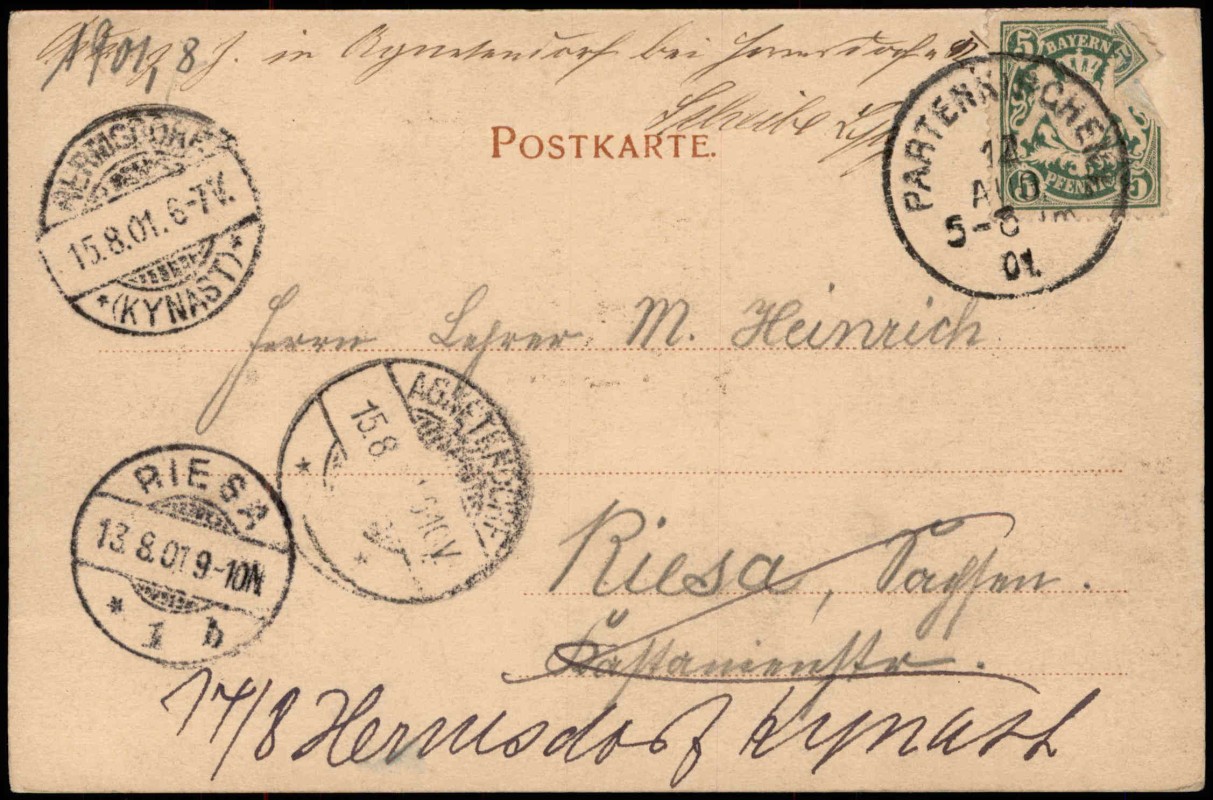 1901, 8
z. Z. in Agnetendorf bei Hermsdorf
POSTKARTE.
BAYERN
5 5
5 5
PFENNIG
PARTENKIRCHEN
12
AUG.
5-6 Nm
01.
HERMSDORF
15.8.01.6-7V.
*(KYNAST)*
Herrn Lehrer M. Heinrich
AGNETENDORF
15.8
RIESA
13.8.01 9-10N.
* 1 b
Riesa, Sachsen.
Kastanienstr.
14/8 Hermsdorf Kynast